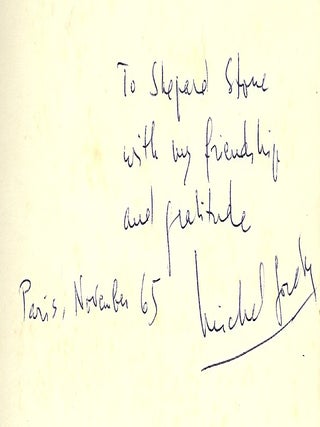 To Shepard Stone
with my friendship
and gratitude
Paris, November 65
Michel Gordey